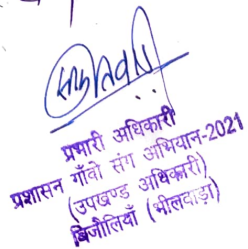 प्रभारी अधिकारी
प्रशासन गाँवो संग अभियान-2021
(उपखण्ड अधिकारी)
बिजौलियाँ (भीलवाड़ा)